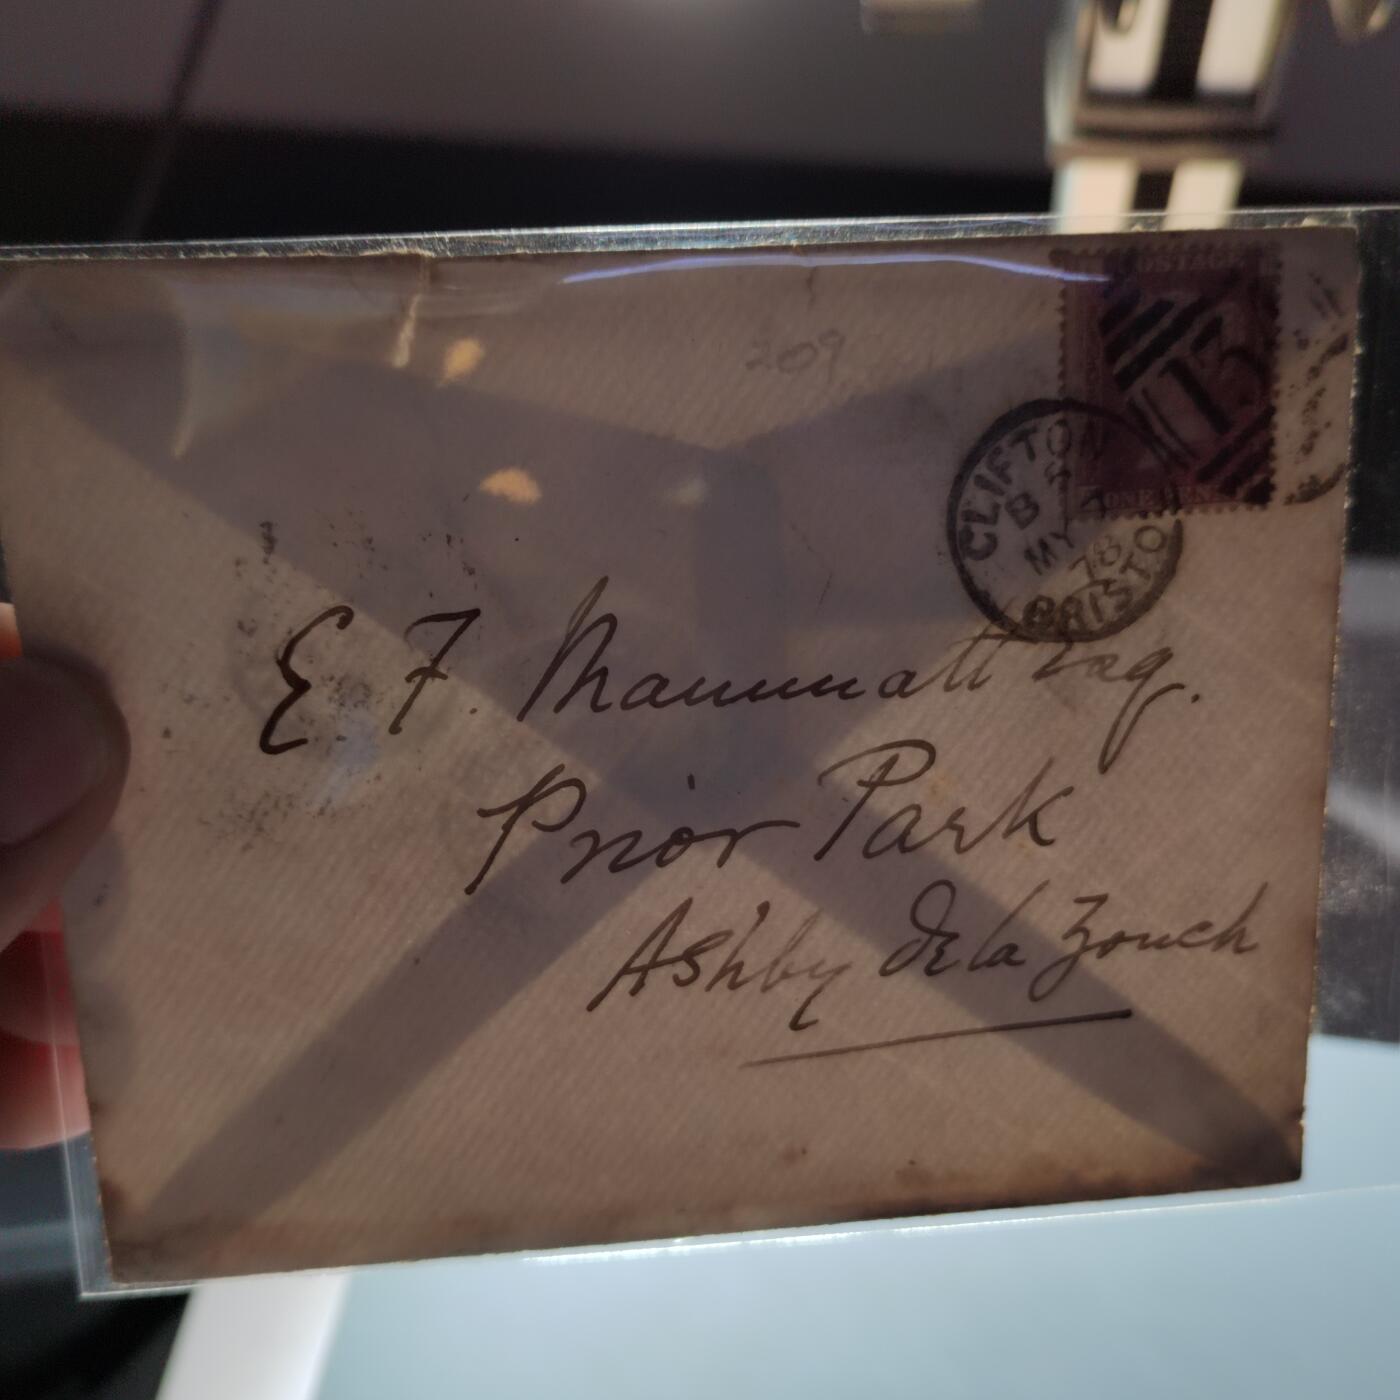 POSTAGE
209
13
ONE PENNY
CLIFTON
B
MY 7
78
BRISTO
E F. Mammatt Esq.
Prior Park
Ashby de la Zouch